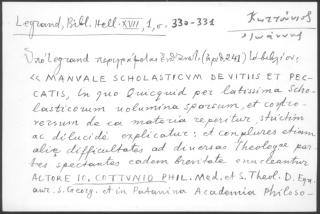 Legrand, Bibl. Hell. XVII, 1, σ. 330-331
Κωττούνιος
Ἰωάννης
Ὑπὸ Legrand περιγράφεται ἐνθ. ἀνωτ. (ἀριθ. 241) τὸ βιβλίον:
« MANVALE SCHOLASTICVM DE VITIIS ET PEC-
CATIS, In quo Quicquid per latissima Scho-
lasticorum uolumina sparsum, et contro-
versum de ea materia reperitur strictim
ac dilucidè explicatur; et complures etiam
aliae difficultates ad diversas Theologiae par-
tes spectantes eadem brevitate enucleantur
ACTORE IO. COTTVNIO PHIL. Med. et S. Theol. D. Equ.
aur. S. Georg. et in Patavina Academia Philoso-